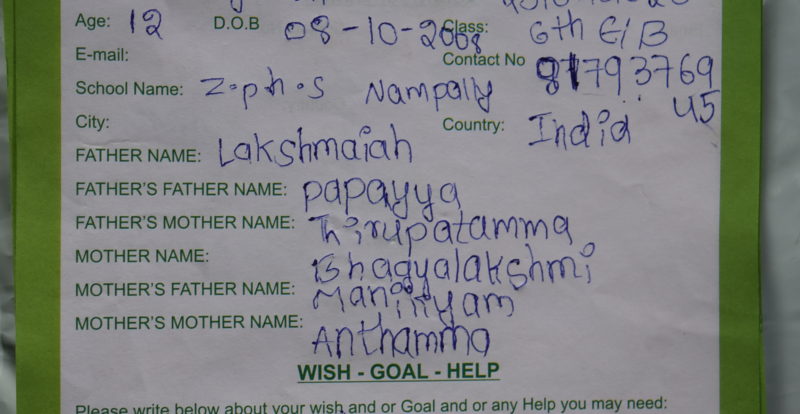 Age: 12 D.O.B 08-10-2008 Class: 6th E/B
E-mail: Contact No 81793769
School Name: Z.p.h.s Nampally 45
City: Country: India
FATHER NAME: Lakshmaiah
FATHER'S FATHER NAME: papayya
FATHER'S MOTHER NAME: Thirupatamma
MOTHER NAME: Bhagyalakshmi
MOTHER'S FATHER NAME:
MOTHER'S MOTHER NAME: Anthamma
WISH - GOAL - HELP
Please write below about your wish and or Goal and or any Help you may need: